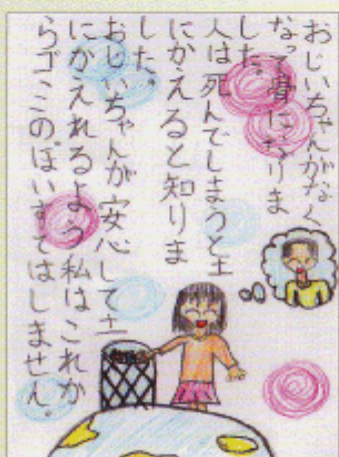 おじいちゃんがなく
なって骨になりま
した。
人は死んでしまうと土
にかえると知りま
した。
おじいちゃんが安心して土
にかえれるよう私はこれか
らゴミのぽいすてはしません。